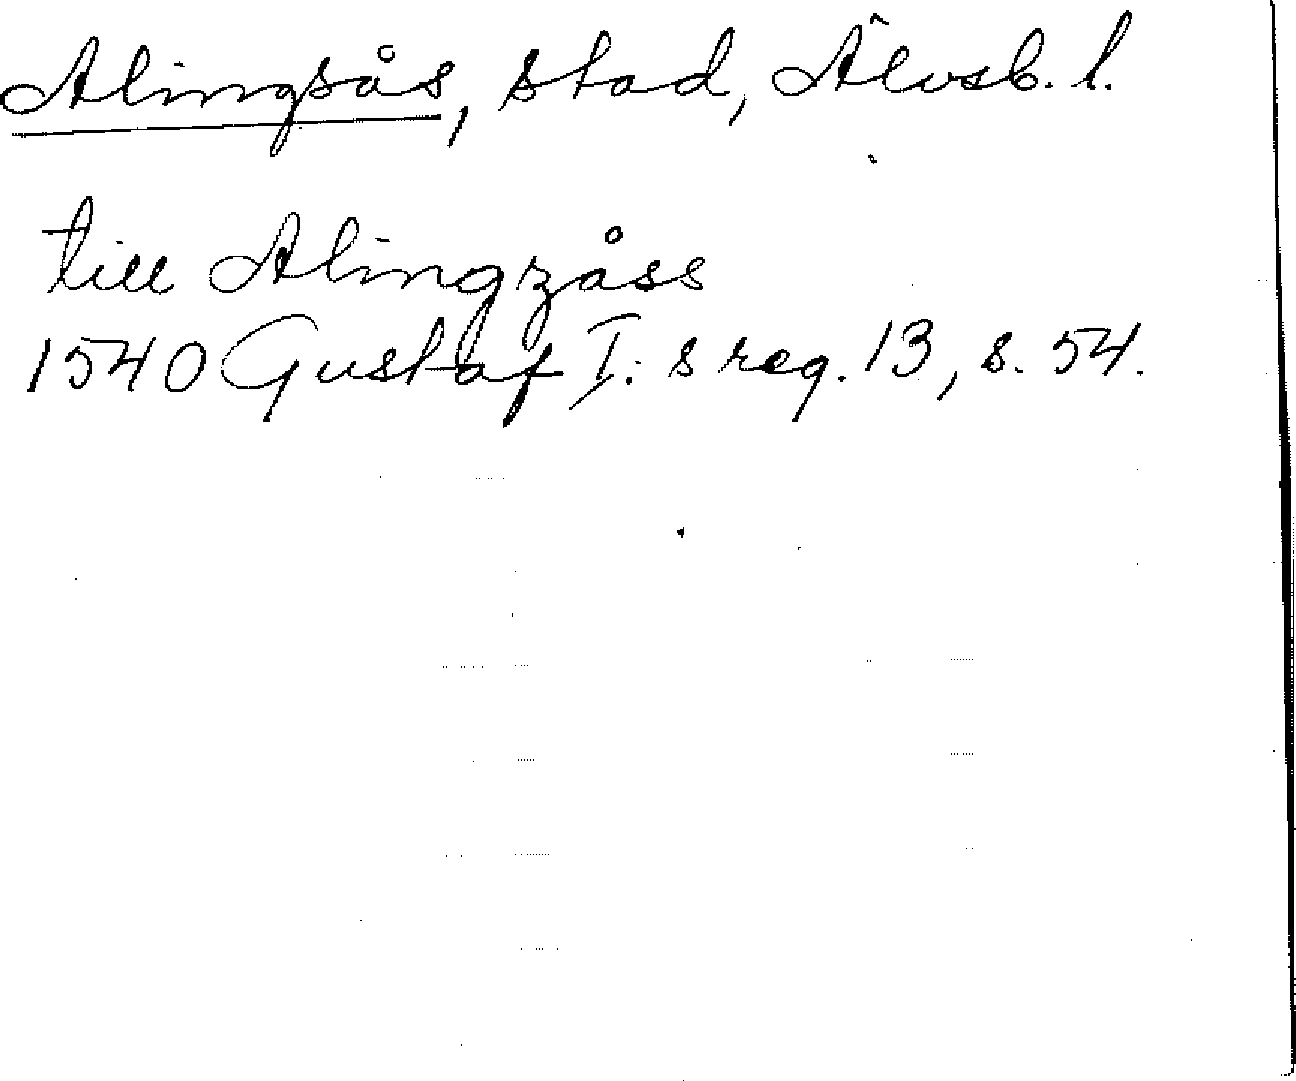 Alingsås, stad, Älvsb. l.
till Alingzåss
1540 Gustaf I:s reg. 13, s. 54.